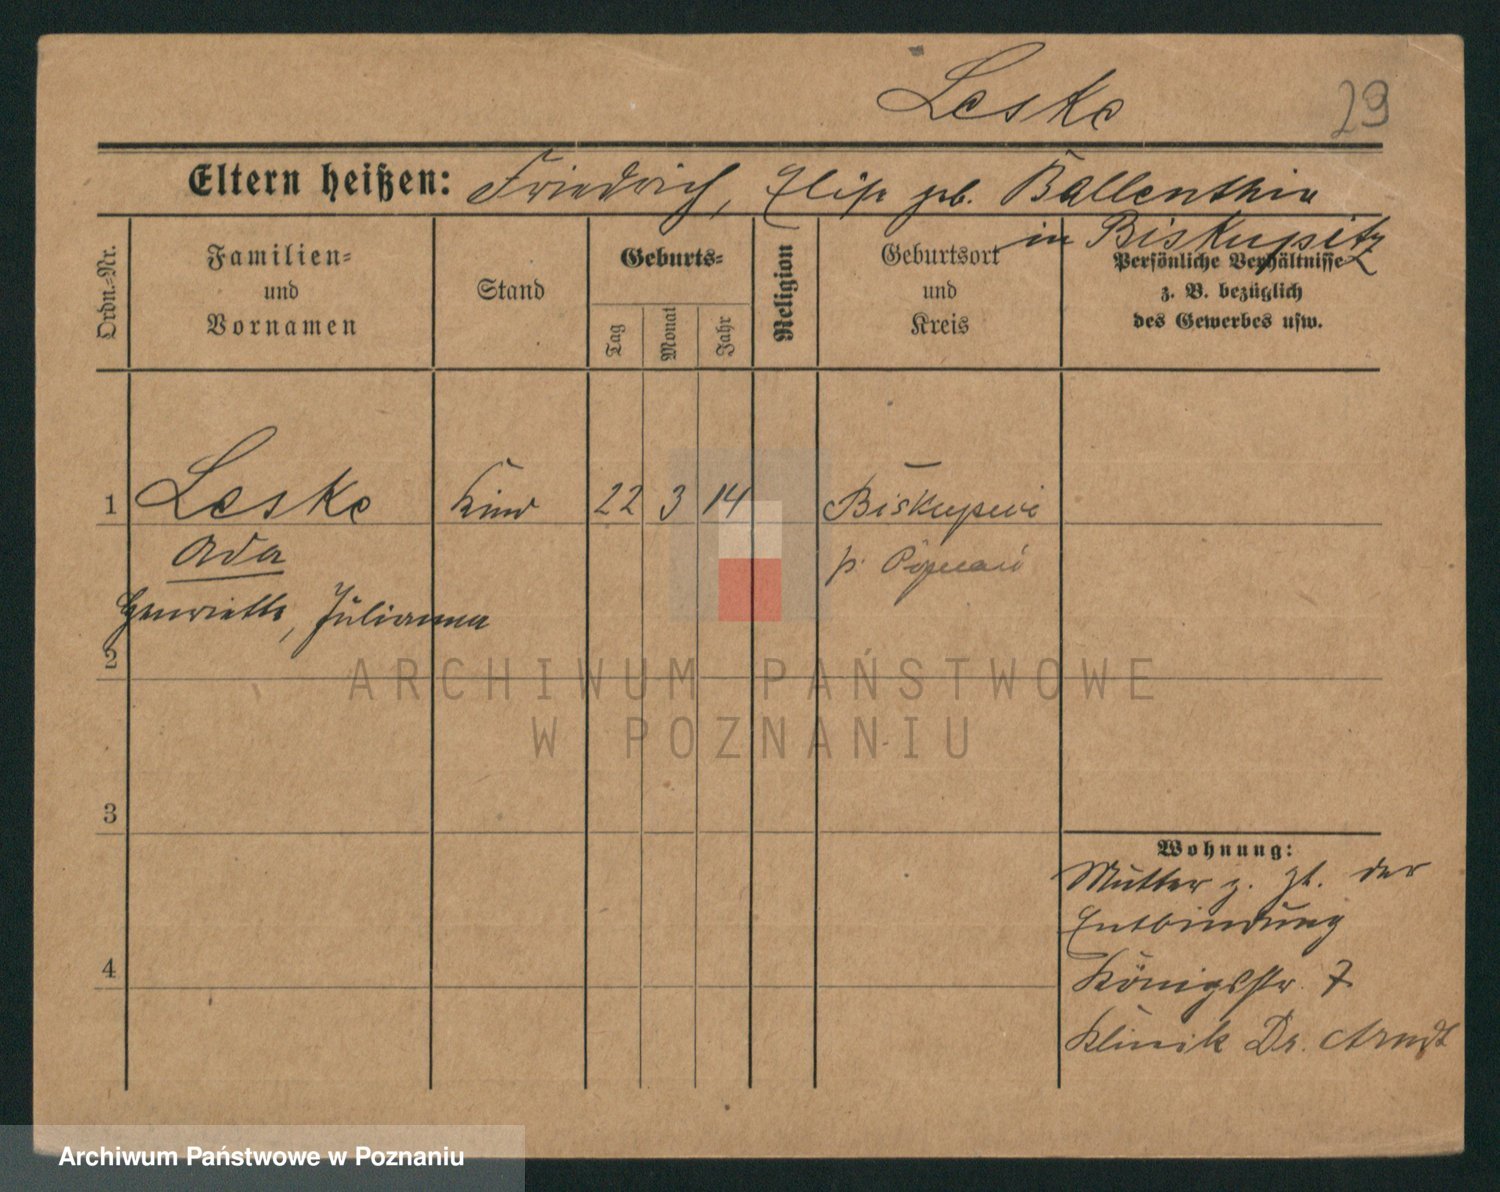 Leske
29
Eltern heißen: Friedrich, Elise geb. Ballenthin
in Biskupitz
Ordn.-Nr.
Familien-
und
Vornamen
Stand
Geburts-
Tag
Monat
Jahr
Religion
Geburtsort
und
Kreis
Persönliche Verhältnisse
z. B. bezüglich
des Gewerbes usw.
1 Leske Kind 22 3 14 Biskupice
Ada p. Poznań
Henriette, Julianna
2
ARCHIWUM PAŃSTWOWE
W POZNANIU
3
Wohnung:
Mutter z. Zt. der
Entbindung
4
Königsstr. 7
Klinik Dr. Arndt
Archiwum Państwowe w Poznaniu